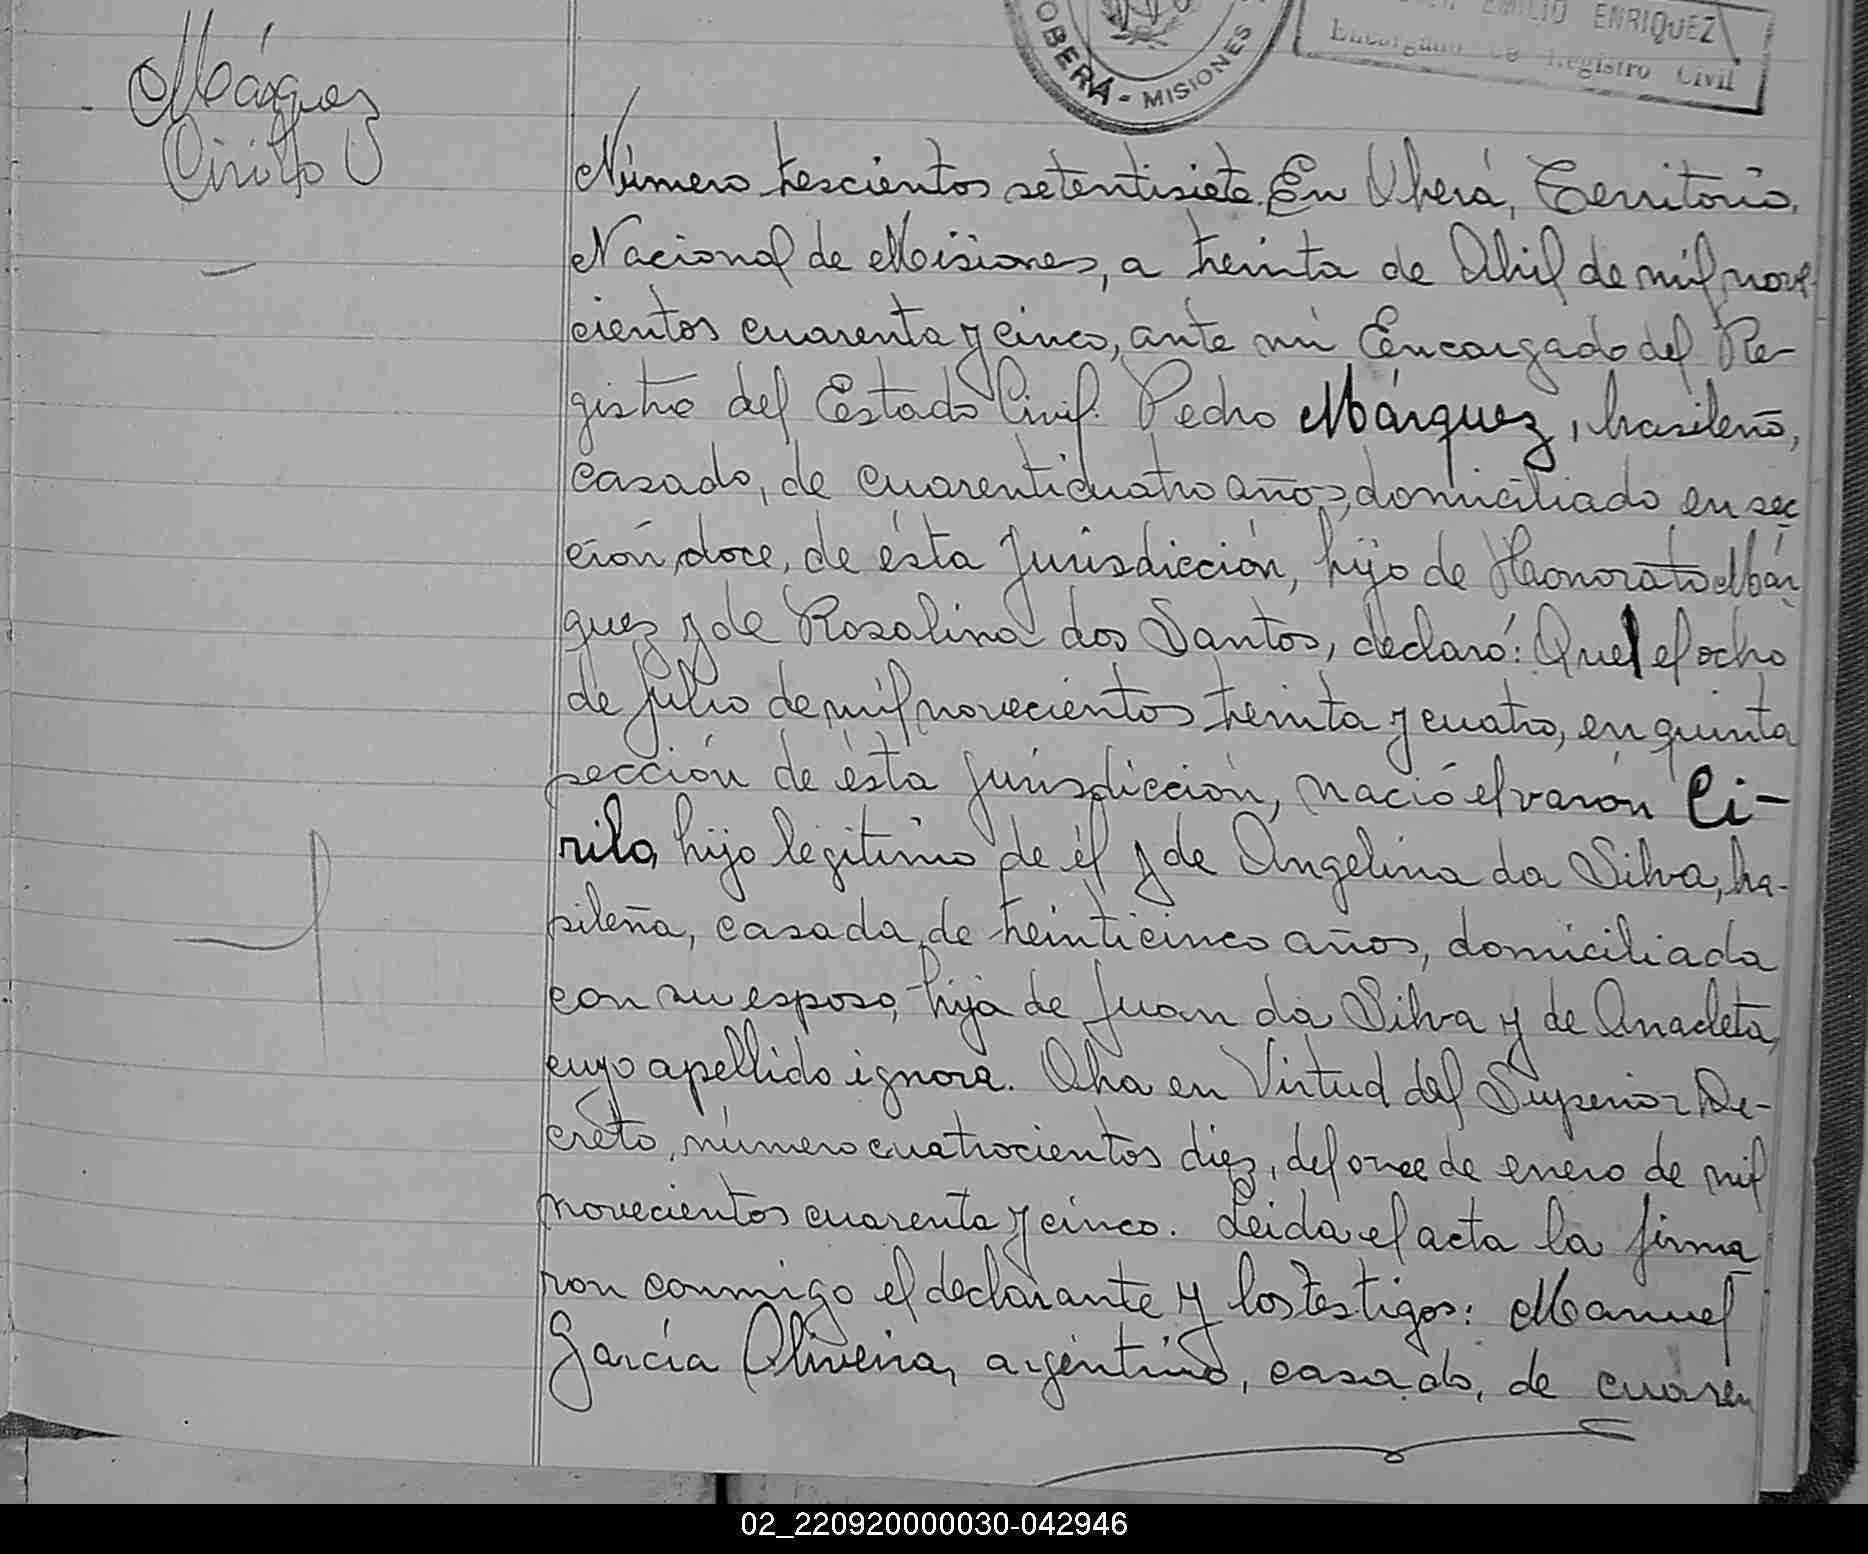 EMILIO ENRIQUEZ
Encargado de Registro Civil
OBERÁ - MISIONES
Márquez
Cirilo
Número trescientos setentisiete. En Oberá, Territorio
Nacional de Misiones, a treinta de Abril de mil nove
cientos cuarenta y cinco, ante mí Encargado del Re-
gistro del Estado Civil. Pedro Márquez, brasileño,
casado, de cuarenticuatro años, domiciliado en sec
ción doce, de ésta Jurisdicción, hijo de Honorato Már
quez y de Rosalina dos Santos, declaró: Que el ocho
de julio de mil novecientos treinta y cuatro, en quinta
sección de ésta jurisdicción, nació el varón Ci-
rilo, hijo legítimo de él y de Angelina da Silva, bra-
sileña, casada, de treinticinco años, domiciliada
con su esposo, hija de Juan da Silva y de Anacleta,
cuyo apellido ignora. Obra en Virtud del Superior De-
creto, número cuatrocientos diez, del once de enero de mil
novecientos cuarenta y cinco. Leida el acta la firma
ron conmigo el declarante y los testigos: Manuel
García Oliveira, argentino, casado, de cuaren
02_220920000030-042946